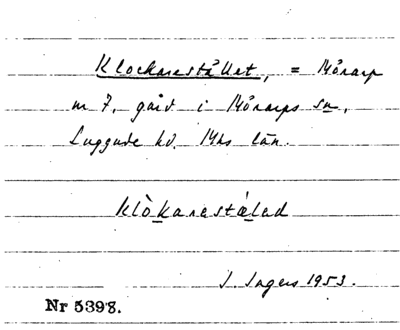 Klockarestället, = Mörarp
nr 7, gård i Mörarps sn,
Luggude hd. Mhs län.
klòkarestǻləd
I. Ingers 1953.
Nr 5398.